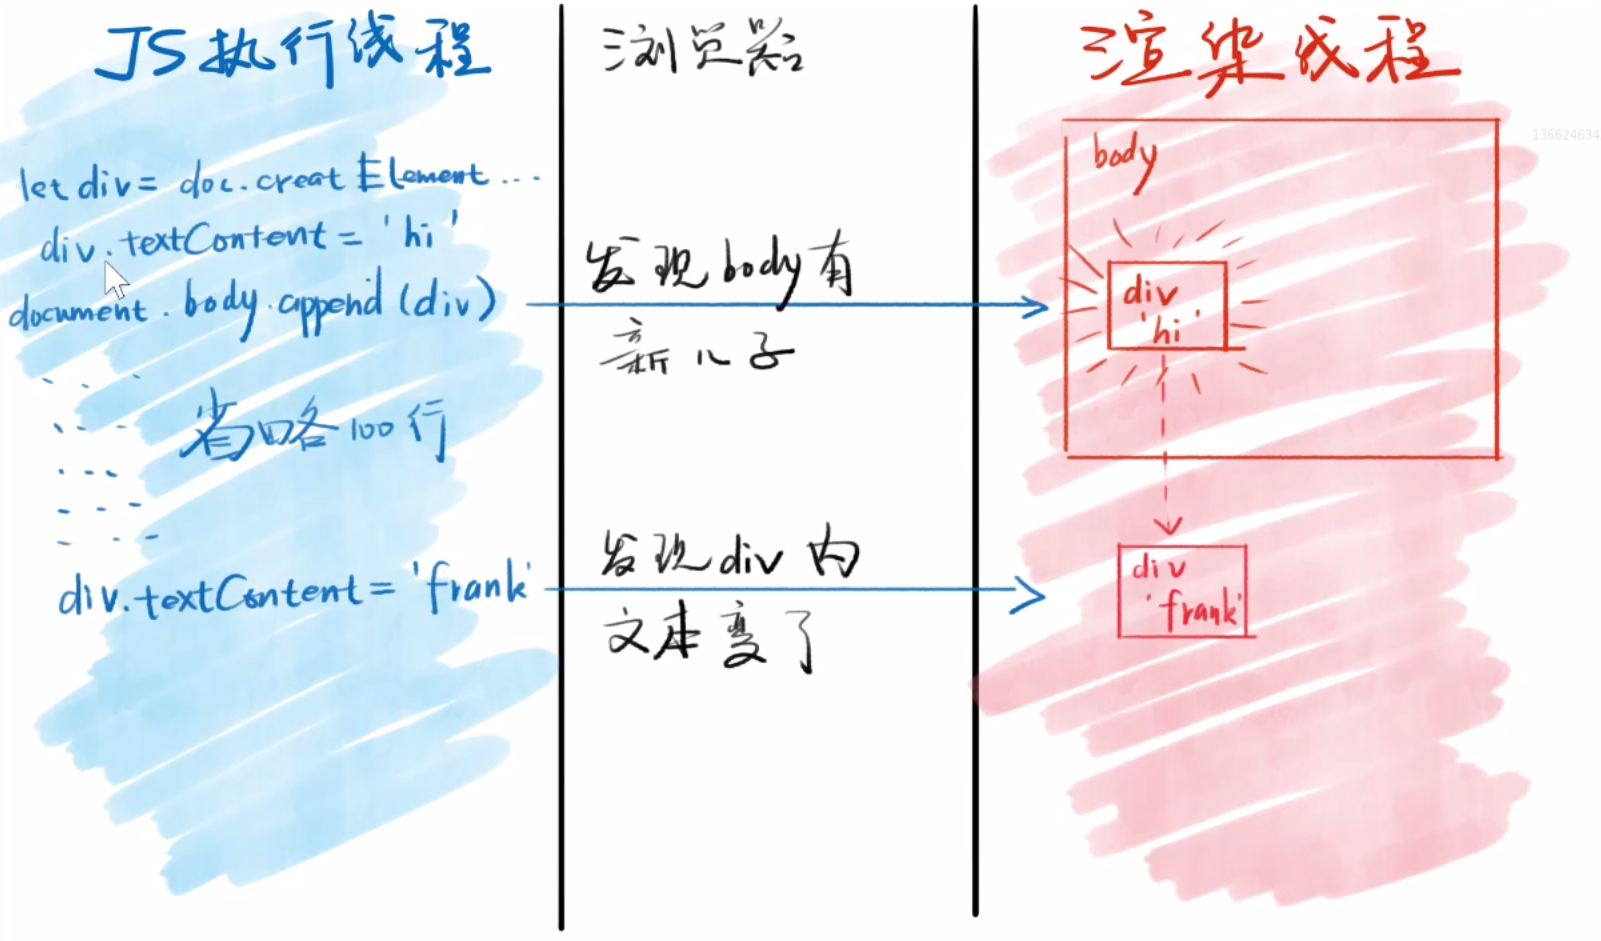 JS执行线程
let div = doc.creatElement...
div.textContent = 'hi'
document.body.append(div)
省略100行
div.textContent = 'frank'
浏览器
发现body有
新儿子
发现div内
文本变了
渲染线程
body
div
'hi'
div
'frank'
136624634